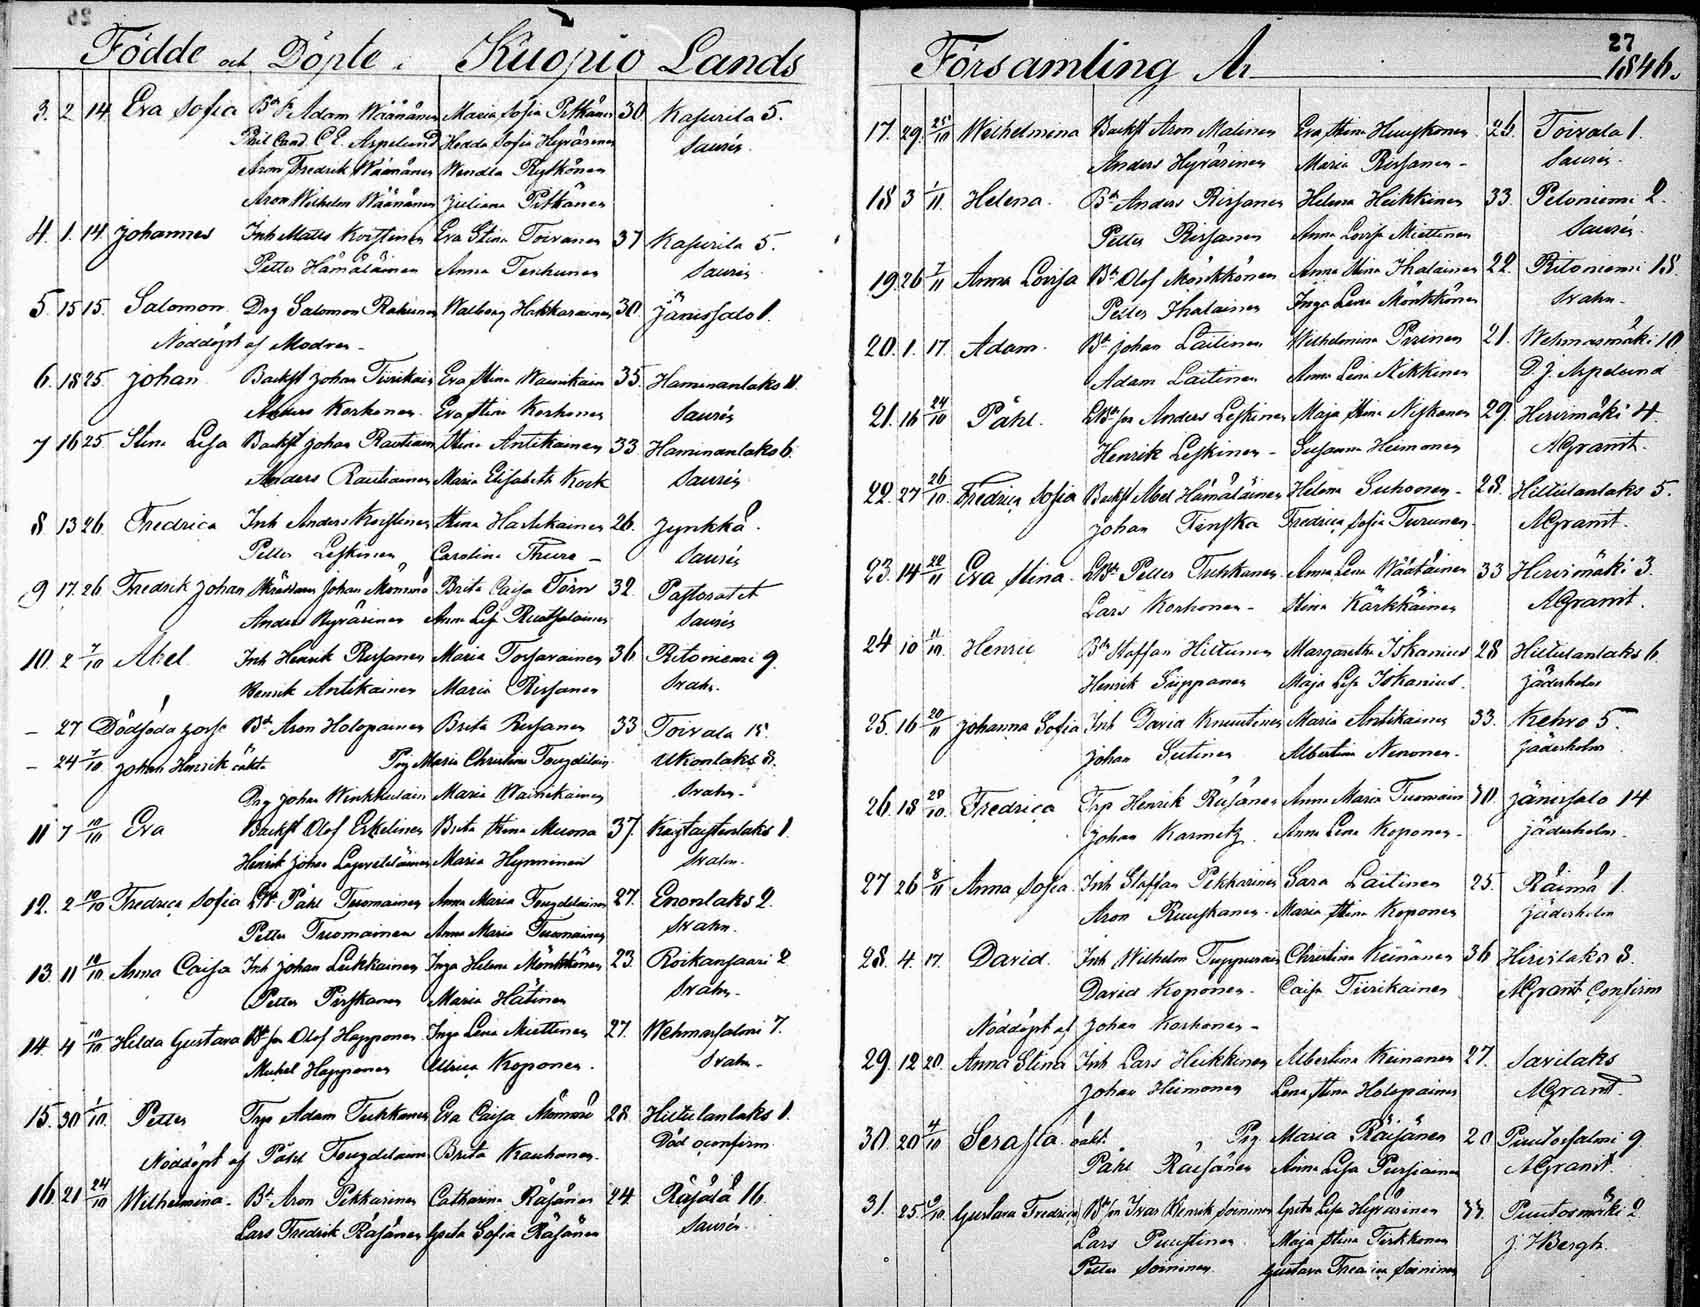 26
Födde och Döpte i Kuopio Lands
3. 2 14 Eva Sofia Bd Adam Wäänänen Maria Sofia Pitkänen 30 Kasurila 5.
Phil Cand. C E. Aspelund Hedda Sofia Hyvärinen Saurén.
Aron Fredrik Wäänänen Wendla Rytkönen
Aron Wilhelm Wäänänen Juliana Pitkänen
4. 1. 14 Johannes Inh Matts Koistinen Eva Stina Toivanen 37 Kasurila 5.
Petter Hämäläinen Anna Tenhunen Saurén.
5 15 15. Salomon Drg Salomon Rahunen Walborg Hakkarainen 30. Jänissalo 1.
Nöddöpt af Modren
6. 18 25. Johan Backst Johan Tiirikain Eva Stina Wainikain 35. Haminanlaks 11
Korhonen Eva Stina Korhonen Saurén
7 16 25 Stina Lisa Backst Johan Rautiainen Stina Antikainen 33 Haminanlaks 6.
Anders Rautiainen Maria Elisabeth Kock Saurén
8 13 26 Fredrica Inh Anders Koistinen Stina Hartikainen 26. Jynkkä.
Petter Leskinen Carolina Thure Saurén
9 17. 26 Fredrik Johan Skräddaren Johan Mömmö Brita Caisa Törn 32. Pastoratet
Anders Hyvärinen Anna Lisa Ruotsalainen Saurén
10. 2 7/10 Abel Inh Henrik Rissanen Maria Torvarainen 36 Ritoniemi 9.
Henrik Antikainen Maria Rissanen Svahn.
- 27 Dödföda gosse Bd Aron Holopainen Brita Rissanen 33 Toivala 18.
- 24 7/10 Johan Henrik oäkta Pig Maria Christina Tougdilain Ukonlaks 3.
Drg Johan Winkkulain Maria Wainikainen Svahn.
11 7 10/10 Eva Backst Olof Eskelinen Brita Stina Muona 37. 1.
Henrik Johan Lappeteläinen Maria Hynninen Svahn.
12. 2 10/10 Fredrica Sofia Påhl Tuomainen Anna Maria Tougdelainen 27. Enonlaks 2.
Petter Tuomainen Anna Maria Tuomainen Svahn.
13 11 10/10 Anna Caisa Inh Johan Leikkainen Inga Helena Mönkkönen 23. Roikansaari 2
Petter Pirskanen Maria Hätinen Svahn.
14. 4 10/10 Hilda Gustava Olof Happonen Inga Lena Miettinen 27. Wehmersalmi 7.
Mickel Happonen Ulrica Koponen. Svahn.
15. 30 1/10 Petter Trp Adam Tukkanen Eva Caisa Mömmö 28 Hiltulanlaks 1.
Nöddöpt af Påhl Tougdelainen Brita Kauhanen. Död oconfirm.
16. 21 24/10 Wilhelmina. Bd Aron Pekkarinen Catharina Räsänen 24. Räsälä 16.
Lars Fredrik Räsänen Greta Sofia Räsänen Saurén.
27
Församling År 1846.
17. 29. 25/10 Wilhelmina Backst Aron Malinen Eva Stina Huuskonen 26. Toivala 1.
Anders Hyvärinen Maria Rissanen Saurén.
18 3 1/11. Helena. Bd Anders Rissanen Helena Heikkinen 33. Peloniemi 2.
Petter Rissanen Anna Lovisa Miettinen Saurén.
19. 26 7/11 Anna Lovisa Bd Olof Mönkkönen Anna Stina Ihalainen 22. Ritoniemi 18.
Petter Ihalainen Inga Lena Mönkkönen Svahn
20. 1. 17 Adam. Bd Johan Laitinen Wilhelmina Pirinen 21. Wehmasmäki 10
Adam Laitinen Anna Lena Nikkinen D. J. Aspelund
21. 16 24/10 Påhl. Anders Leskinen Maja Stina Niskanen 29. Hirvimäki 4.
Henrik Leskinen Susanna Heimonen AGranit.
22. 27 26/10. Fredrica Sofia Backst Abel Hämäläinen Helena Suhonen 28. Hiltulanlaks 5.
Johan Fredrica Sofia Turunen AGranit.
23. 14 20/11 Eva Stina. Petter Tukkanen Anna Lena Wäätäinen 33 Hirvimäki 3.
Lars Korhonen Stina Kärkkäinen AGranit.
24 10 11/10. Henric Bd Staffan Hiltunen Margaretha Iskanius 28 Hiltulanlaks 6.
Henrik Suppanen Maja Lisa Iskanius. Jäderholm
25. 16 20/11 Johanna Sofia Inh David Knuutinen Maria Antikainen 33. Kehvo 5.
Johan Sutinen Albertina Nenonen. Jäderholm
26. 18 28/10. Fredrica Trp Henrik Räsänen Anna Maria Tuomain 30. Jänissalo 14
Johan Karmitz Anna Lena Koponen. Jäderholm.
27 26 8/11 Anna Sofia. Inh Staffan Pekkarinen Sara Laitinen 25. Räimä 1.
Aron Ruuskanen. Maria Stina Koponen Jäderholm
28. 4. 17. David. Inh Wilhelm Tuppurain Christina Keinänen 36 Hirvilaks 8.
David Koponen. Caisa Tiirikainen AGranit Confirm
Nöddöpt af Johan Korhonen
29. 12 20. Anna Stina Inh Lars Heikkinen Albertina Keinanen 27. Savilaks
Johan Heimonen Lena Stina Holopainen AGranit.
30. 20 4/10 Serafia. oäkt. Pig Maria Räisänen 20 Puutossalmi 9.
Påhl Räisänen Anna Lisa Pursiainen AGranit.
31. 25 9/10 Gustava Fredrica Ivar Henrik Soininen Greta Lisa Hyvärinen 33. Puutosmäki 2
Lars Puustinen Maja Stina Tirkkonen J. VBergh.
Petter Soininen. Gustava Fredrica Soininen